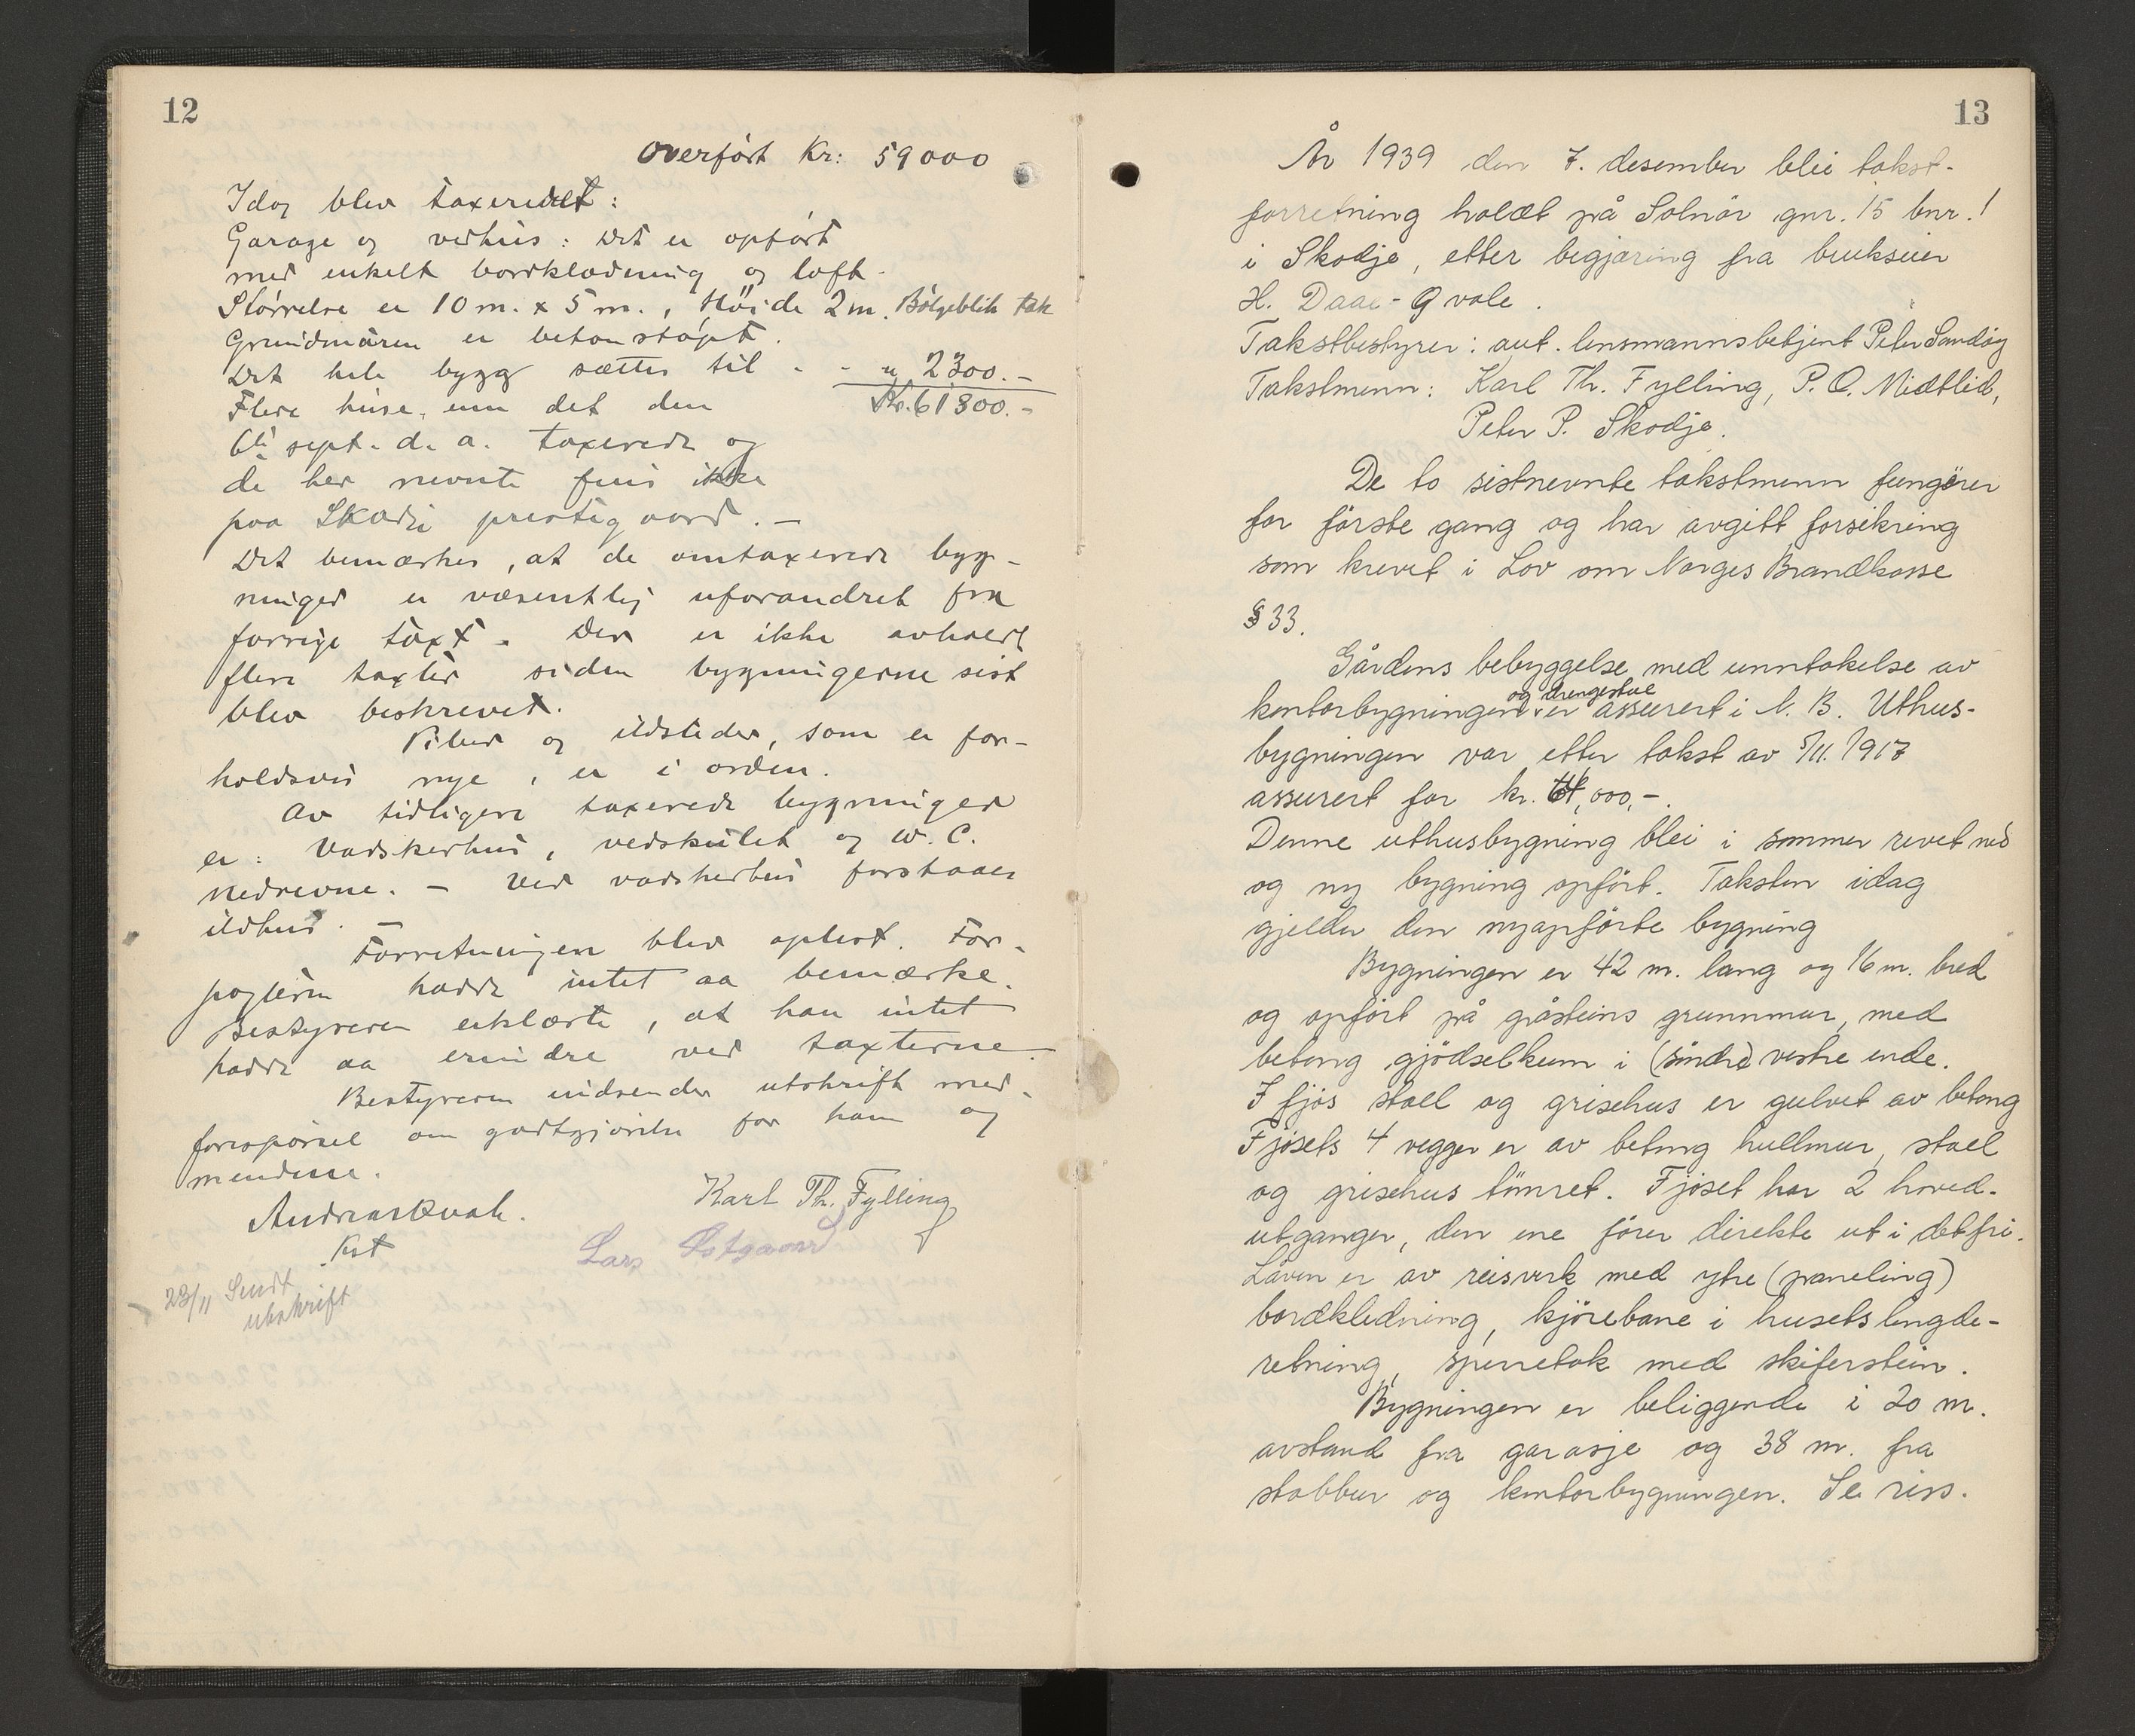 12
Overført Kr: 59000
Idag blev taxeredet:
Garage og vedhus: Det er opført
med enkelt bordklædning og loft.
Størrelse er 10 m. x 5 m., Høide 2 m. Bølgeblik tak
Grundmuren er betonstøpt.
Det hele bygg sættes til - - " 2300.-
Flere huse, enn det den Kr. 61300.-
6te sept. d. a. taxerede og
de her nevnte fins ikke
paa Skodje prestegaard. -
Det bemærkes, at de omtaxerede byg-
ninger er væsentlig uforandret fra
forrige taxt. Der er ikke avholdt
flere taxter siden bygningerne sist
blev beskrevet.
Piber og ildsteder, som er for-
holdsvis nye, er i orden.
Av tidligere taxerede bygninger
er: Vadskerhus, vedskulet og W. C.
nedrevne. - Ved vadskerhus forstaaes
ildhus.
Forretningen blev oplest. For-
pagteren hadde intet aa bemærke.
Bestyreren erklærte, at han intet
hadde aa erindre ved taxterne.
Bestyreren indsender utskrift med
forespørsel om godtgjørelse for ham og
mendene.
Andreas Kvale. Karl Th. Fylling
Kst Lars Østgaard
23/11 Sendt
utskrift
13
År 1939 den 7. desember blei takst-
forretning holdt på Solnør gnr. 15 bnr. 1
i Skodje, etter begjæring fra brukseier
H. Daae-Qvale.
Takstbestyrer: aut. lensmannsbetjent Peter Sandøy
Takstmenn: Karl Th. Fylling, P. O. Midtlid,
Peter P. Skodje.
De to sistnevnte takstmenn fungerer
for første gang og har avgitt forsikring
som krevet i Lov om Norges Brandkasse
§ 33.
Gårdens bebyggelse med unntakelse av
og drengestue
kontorbygningen er assurert i N. B. Uthus-
bygningen var etter takst av 5/11. 1917
assurert for kr. ,000,-.
Denne uthusbygning blei i sommer revet ned
og ny bygning opført. Taksten idag
gjelder den nyopførte bygning
Bygningen er 42 m. lang og 16 m. bred
og opført på gråsteins grunnmur, med
betong gjødselkum i (søndre) vestre ende.
I fjøs stall og grisehus er gulvet av betong
Fjøsets 4 vegger er av betong hullmur, stall
og grisehus tømret. Fjøset har 2 hoved-
utganger, den ene fører direkte ut i det fri.
Låven er av reisverk med ytre (paneling)
bordkledning, kjørebane i husets lengde-
retning, sperretak med skiferstein.
Bygningen er beliggende i 20 m.
avstand fra garasje og 38 m. fra
stabbur og kontorbygningen. Se riss.